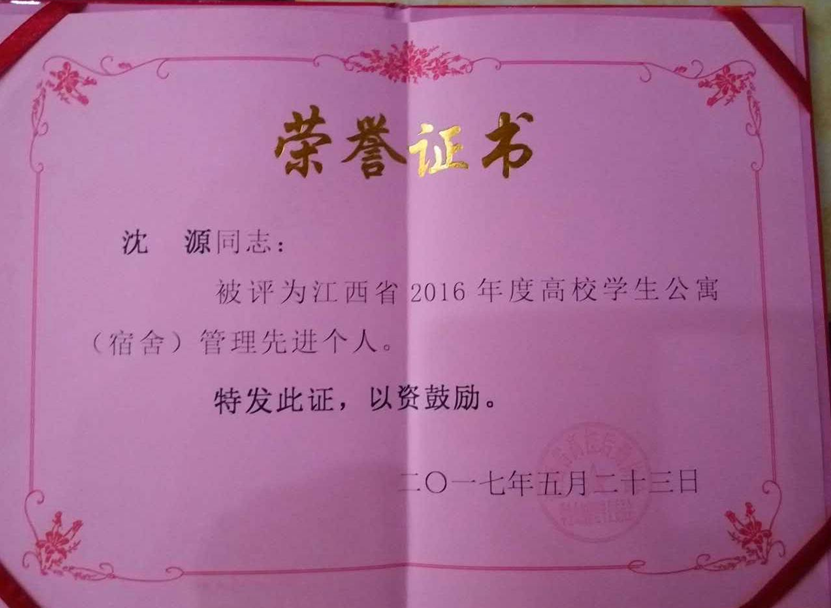 荣誉证书
沈 源同志：
被评为江西省2016年度高校学生公寓
（宿舍）管理先进个人。
特发此证，以资鼓励。
二〇一七年五月二十三日